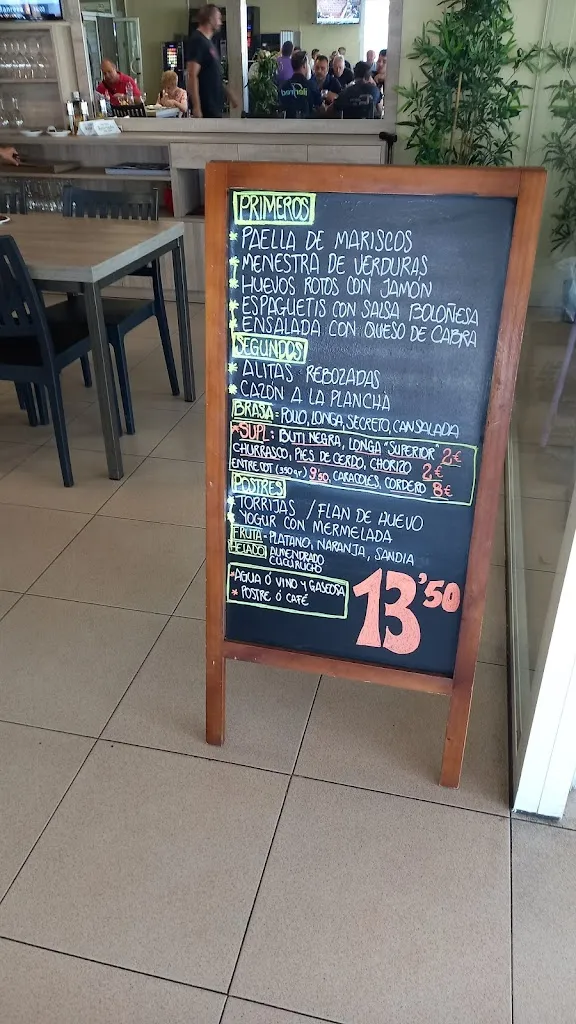 PRIMEROS
* PAELLA DE MARISCOS
* MENESTRA DE VERDURAS
* HUEVOS ROTOS CON JAMÓN
* ESPAGUETIS CON SALSA BOLOÑESA
* ENSALADA CON QUESO DE CABRA
SEGUNDOS
* ALITAS REBOZADAS
* CAZÓN A LA PLANCHA
BRASA - POLLO, LONGA, SECRETO, CANSALADA
*SUPL: BUTI NEGRA, LONGA "SUPERIOR 2€
CHURRASCO, PIES DE CERDO, CHORIZO 2€
ENTRECOT (350gr.) 9'50, CARACOLES, CORDERO 8€
POSTRES
* TORRIJAS / FLAN DE HUEVO
* YOGUR CON MERMELADA
FRUTA - PLATANO, NARANJA, SANDIA
HELADO ALMENDRADO
CUCURUCHO
*AGUA Ó VINO Y GASEOSA
* POSTRE Ó CAFÉ
13'50